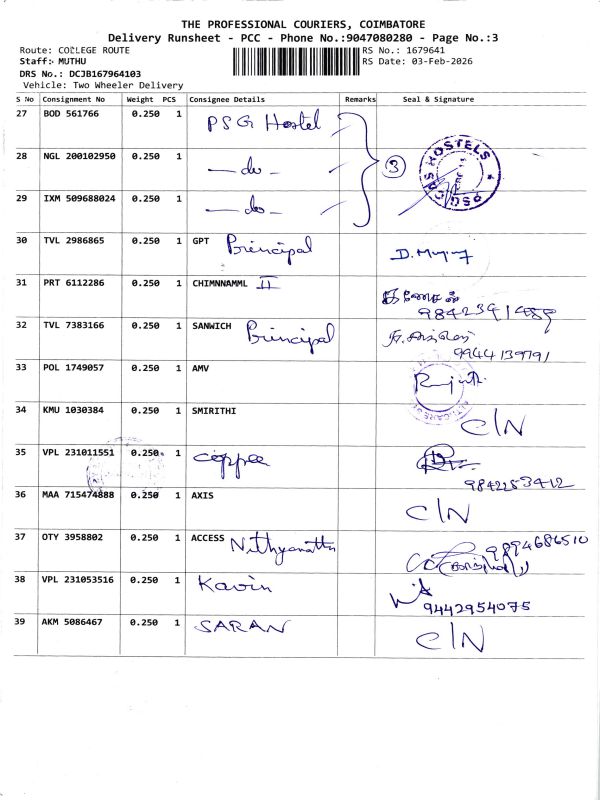 THE PROFESSIONAL COURIERS, COIMBATORE
Delivery Runsheet - PCC - Phone No.:9047080280 - Page No.:3
Route: COLLEGE ROUTE RS No.: 1679641
Staff: MUTHU RS Date: 03-Feb-2026
DRS No.: DCJB167964103
Vehicle: Two Wheeler Delivery
S No Consignment No Weight PCS Consignee Details Remarks Seal & Signature
27 BOD 561766 0.250 1 PSG Hostel
28 NGL 200102950 0.250 1 — do — 3 PSG HOSTELS
29 IXM 509688024 0.250 1 — do —
30 TVL 2986865 0.250 1 GPT Principal
31 PRT 6112286 0.250 1 CHIMNNAMML II
9842391489
32 TVL 7383166 0.250 1 SANWICH Principal
9944139791
33 POL 1749057 0.250 1 AMV
34 KMU 1030384 0.250 1 SMIRITHI C/N
35 VPL 231011551 0.250 1 coppee
9842253412
36 MAA 715474888 0.250 1 AXIS C/N
37 OTY 3958802 0.250 1 ACCESS 9894686510
38 VPL 231053516 0.250 1 Kavin
9442954075
39 AKM 5086467 0.250 1 SARAN C/N